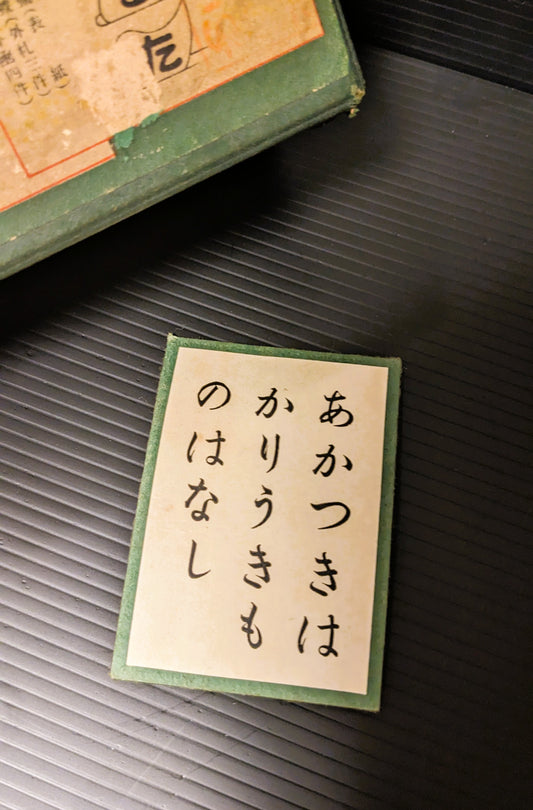 あかつきは
かりうきも
のはなし
た
表
紙)
(外札三件
四件)